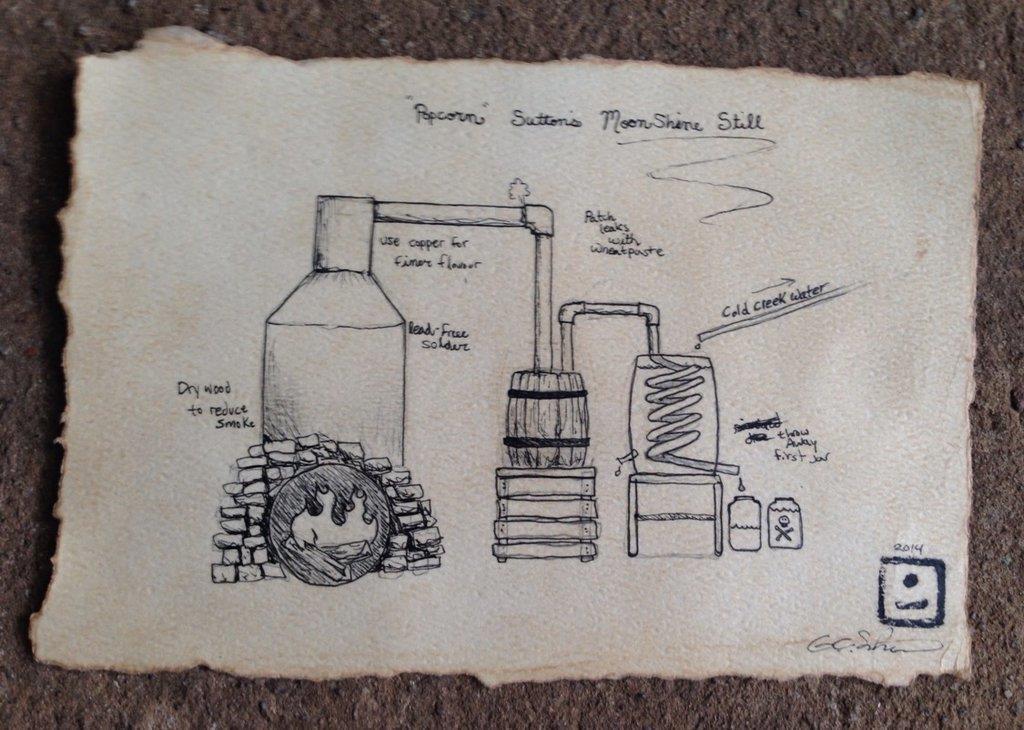 "Popcorn" Sutton's MoonShine Still
use copper for
finer flavour
Patch
leaks
with
wheatpaste
Cold Creek Water
lead-free
solder
Dry wood
to reduce
smoke
throw
Away
first jar
2014